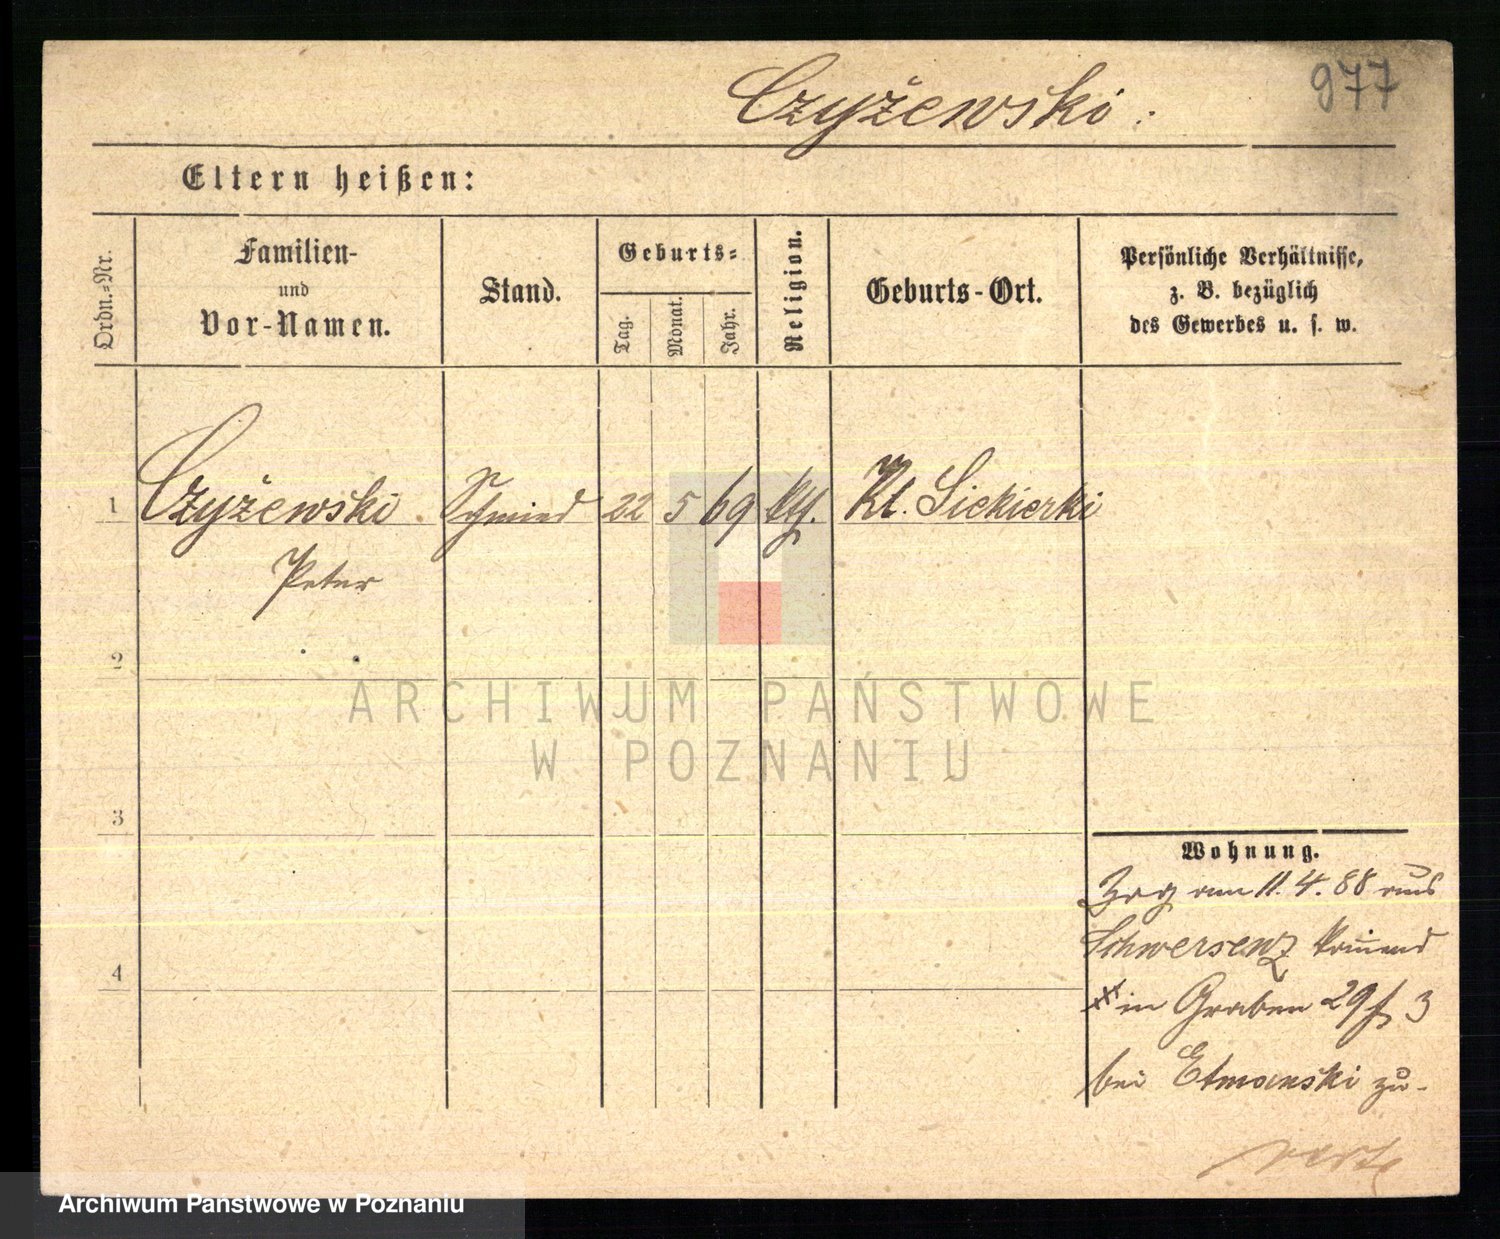 Czyżewski.
977
Eltern heißen:
Ordn.-Nr.
Familien-
und
Vor-Namen.
Stand.
Geburts-
Tag.
Monat.
Jahr.
Religion.
Geburts-Ort.
Persönliche Verhältnisse,
z. B. bezüglich
des Gewerbes u. s. w.
1 Czyżewski Schmied 22 5 69 kth. Kl. Siekierki
Peter
2
3
4
Wohnung.
Zzg am 11. 4. 88 aus
Schwersenz kommend
in Graben 29 3
bei Etmanski zu-
verte
ARCHIWUM PAŃSTWOWE
W POZNANIU
Archiwum Państwowe w Poznaniu